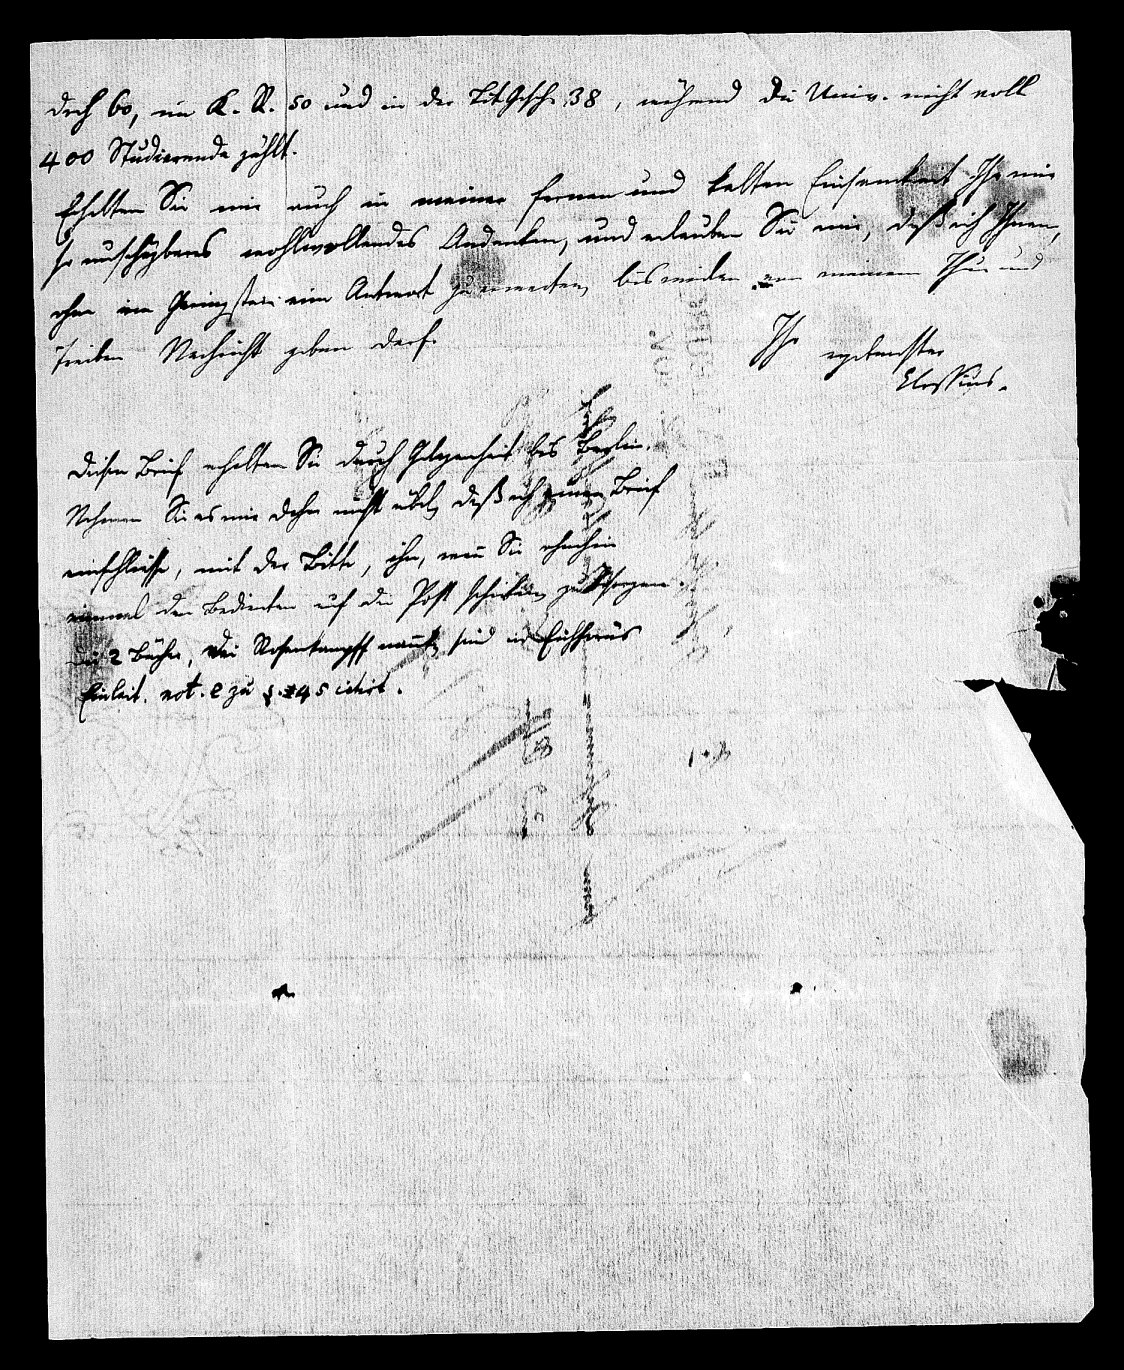 doch 60, im K. R. 50 und in der Lit.Gesch. 38, während die Univ. nicht voll
400 Studierende zählt.
Erhalten Sie mir auch in meiner fernen und kalten Einsamkeit Ihr mir
so unschätzbares wohlwollendes Andenken, und erlauben Sie mir, daß ich Ihnen,
ohne im Geringsten eine Antwort zu erwarten, bisweilen von meinem Thun und
Treiben Nachricht geben darf.
Ihr ergebenster
Clossius.
Diesen Brief erhalten Sie durch Gelegenheit bis Berlin.
Nehmen Sie es mir daher nicht übel, daß ich einen Brief
einschliesse, mit der Bitte, ihn, wenn Sie ohnehin
einmal den Bedienten auf die Post schicken, zu besorgen.
Die 2 Bücher, die Rosenkampff nennt, sind in Eichhorns
Einleit. not. e zu §. 45 citirt.